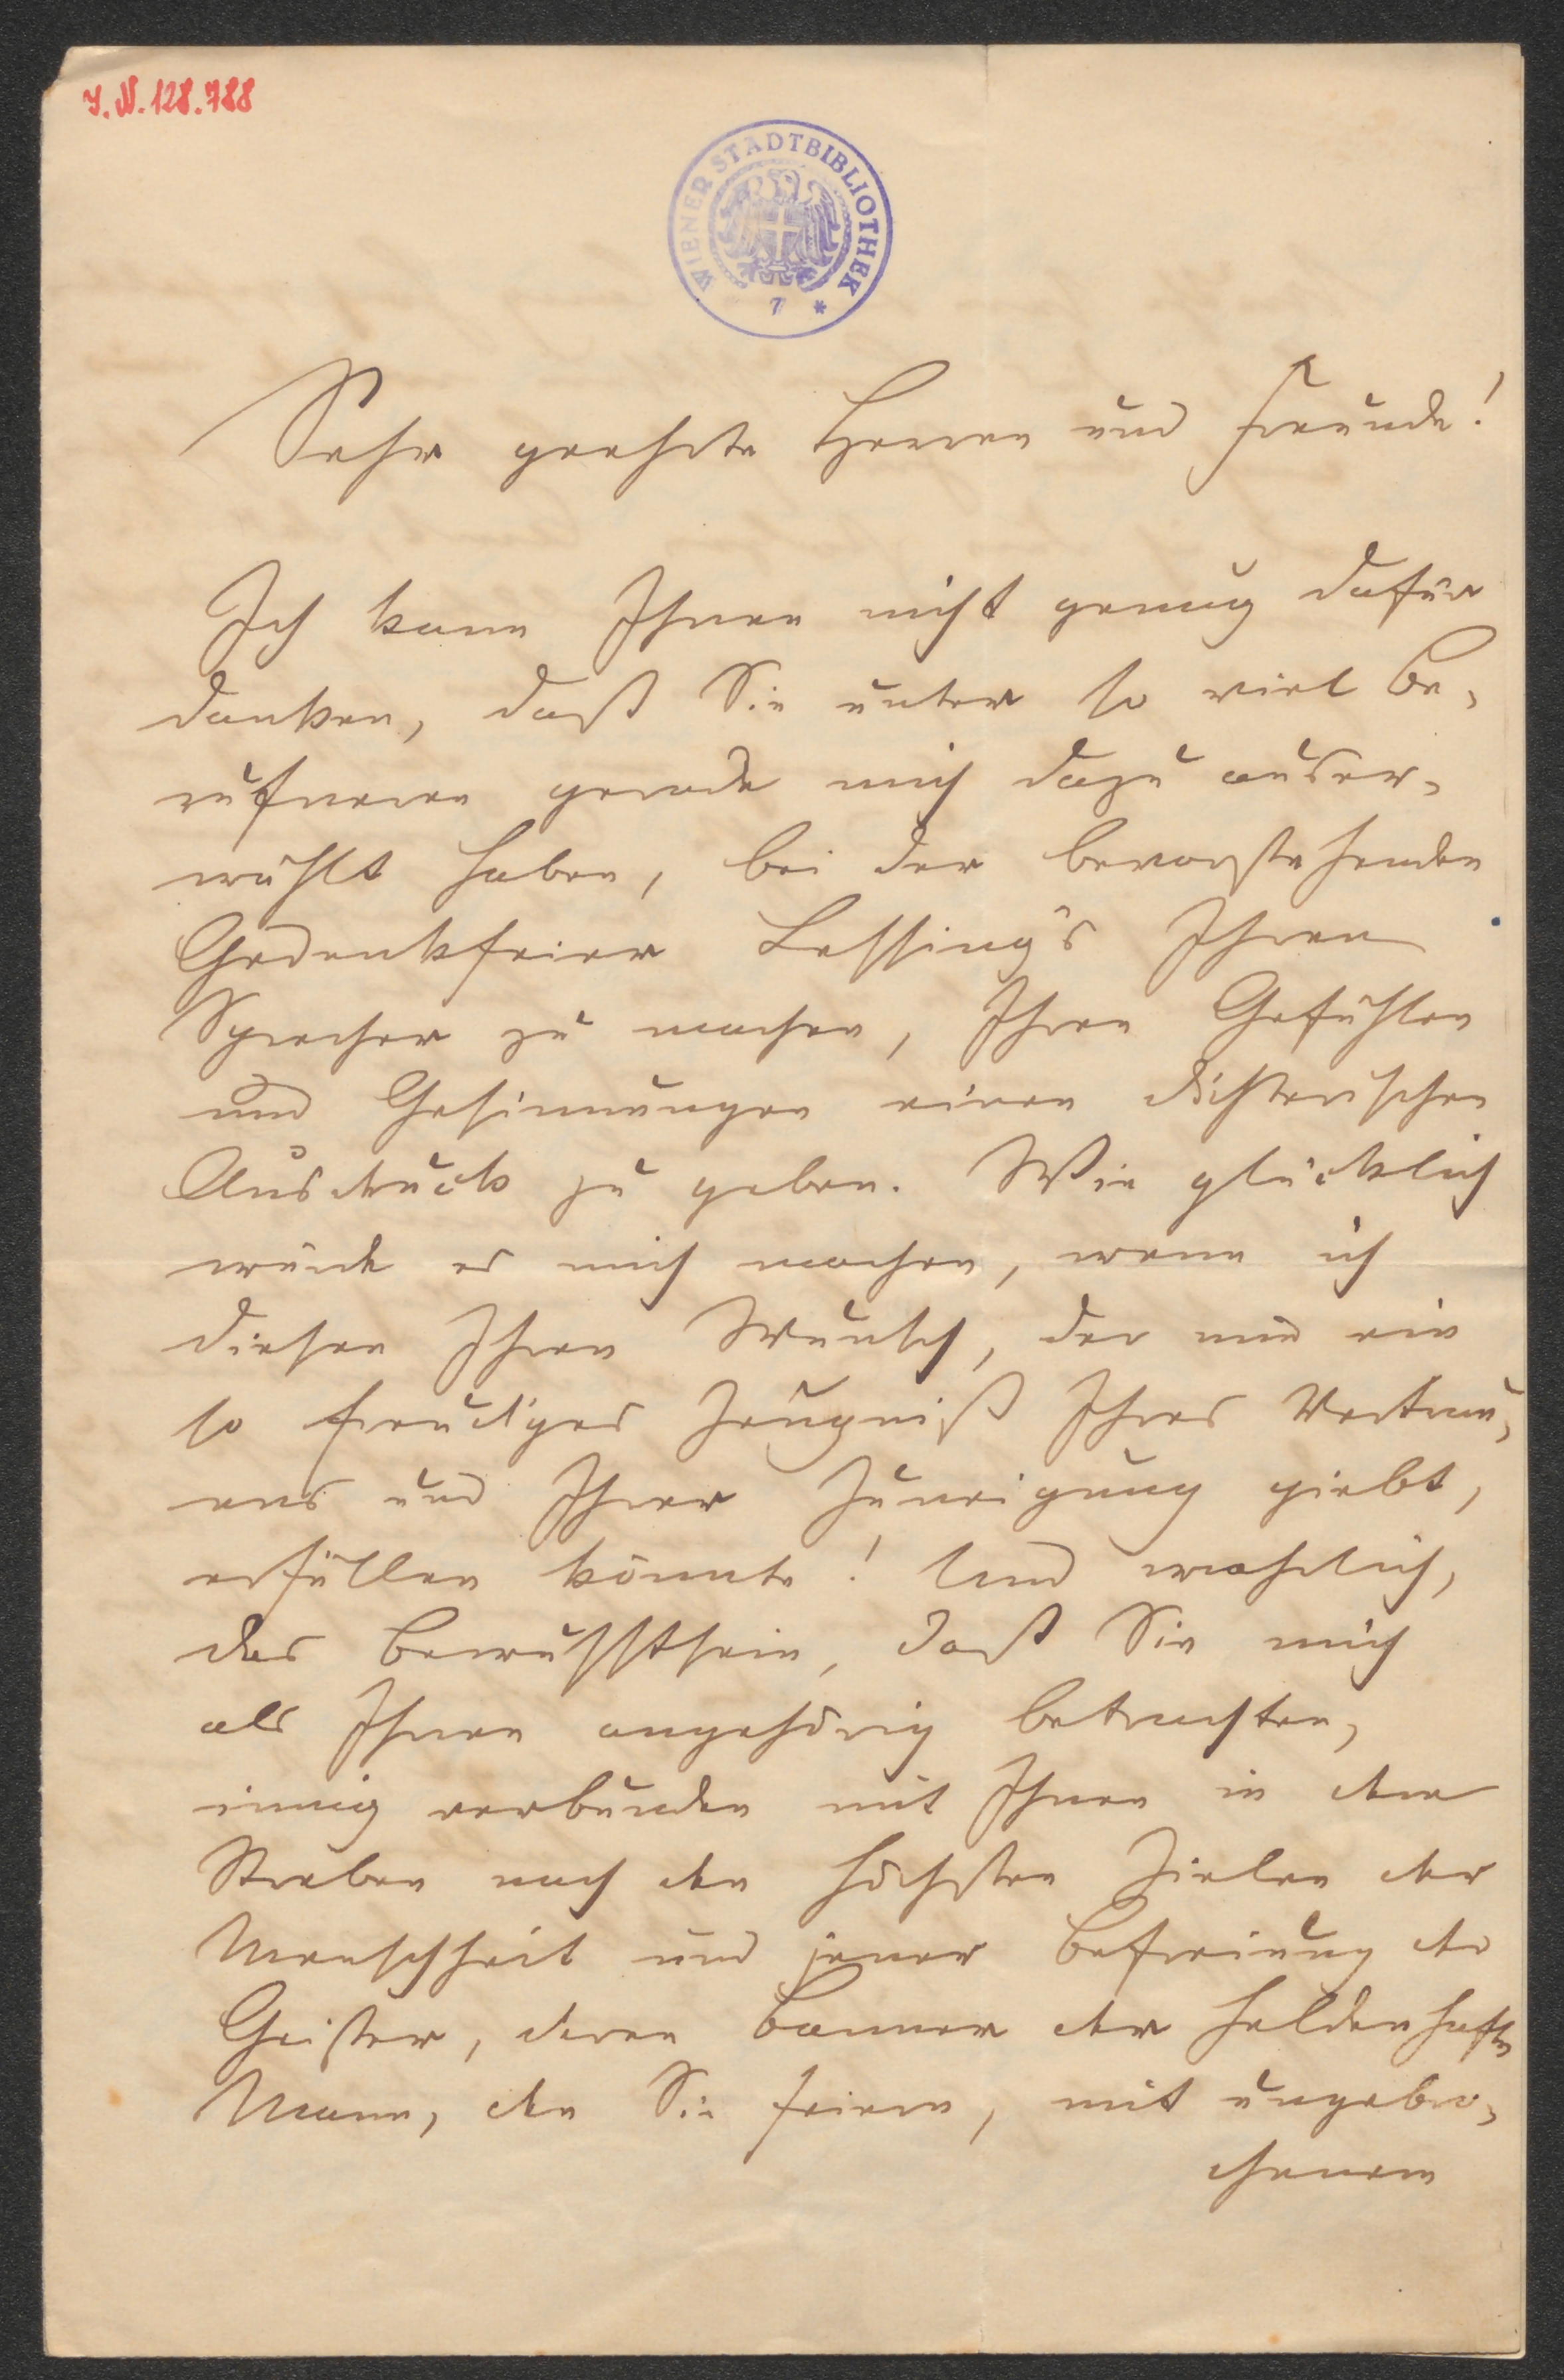 I.N. 128.788
WIENER STADTBIBLIOTHEK
7 *
Sehr geehrte Herren und Freunde!
Ich kann Ihnen nicht genug dafür
danken, daß Sie unter so viel Be-
rufneren gerade mich dazu auser-
wählt haben, bei der bevorstehenden
Gedenkfeier Lessing's Ihren
Sprecher zu machen, Ihren Gefühlen
und Gesinnungen einen dichterischen
Ausdruck zu geben. Wie glücklich
würde es mich machen, wenn ich
diesen Ihren Wunsch, der mir ein
so freudiges Zeugniß Ihres Vertrau-
ens und Ihrer Zuneigung giebt,
erfüllen könnte! Und wahrlich,
das Bewußtsein, daß Sie mich
als Ihnen angehörig betrachten,
innig verbunden mit Ihnen in dem
Streben nach den höchsten Zielen der
Menschheit und jener Befreiung der
Geister, deren Banner der heldenhafte
Mann, den Sie feiern, mit ungebro-
chenem